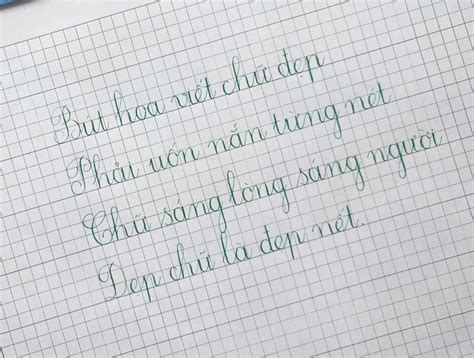 Bút hoa viết chữ đẹp
Phải uốn nắn từng nét
Chữ sáng lòng sáng người
Đẹp chữ là đẹp nết.